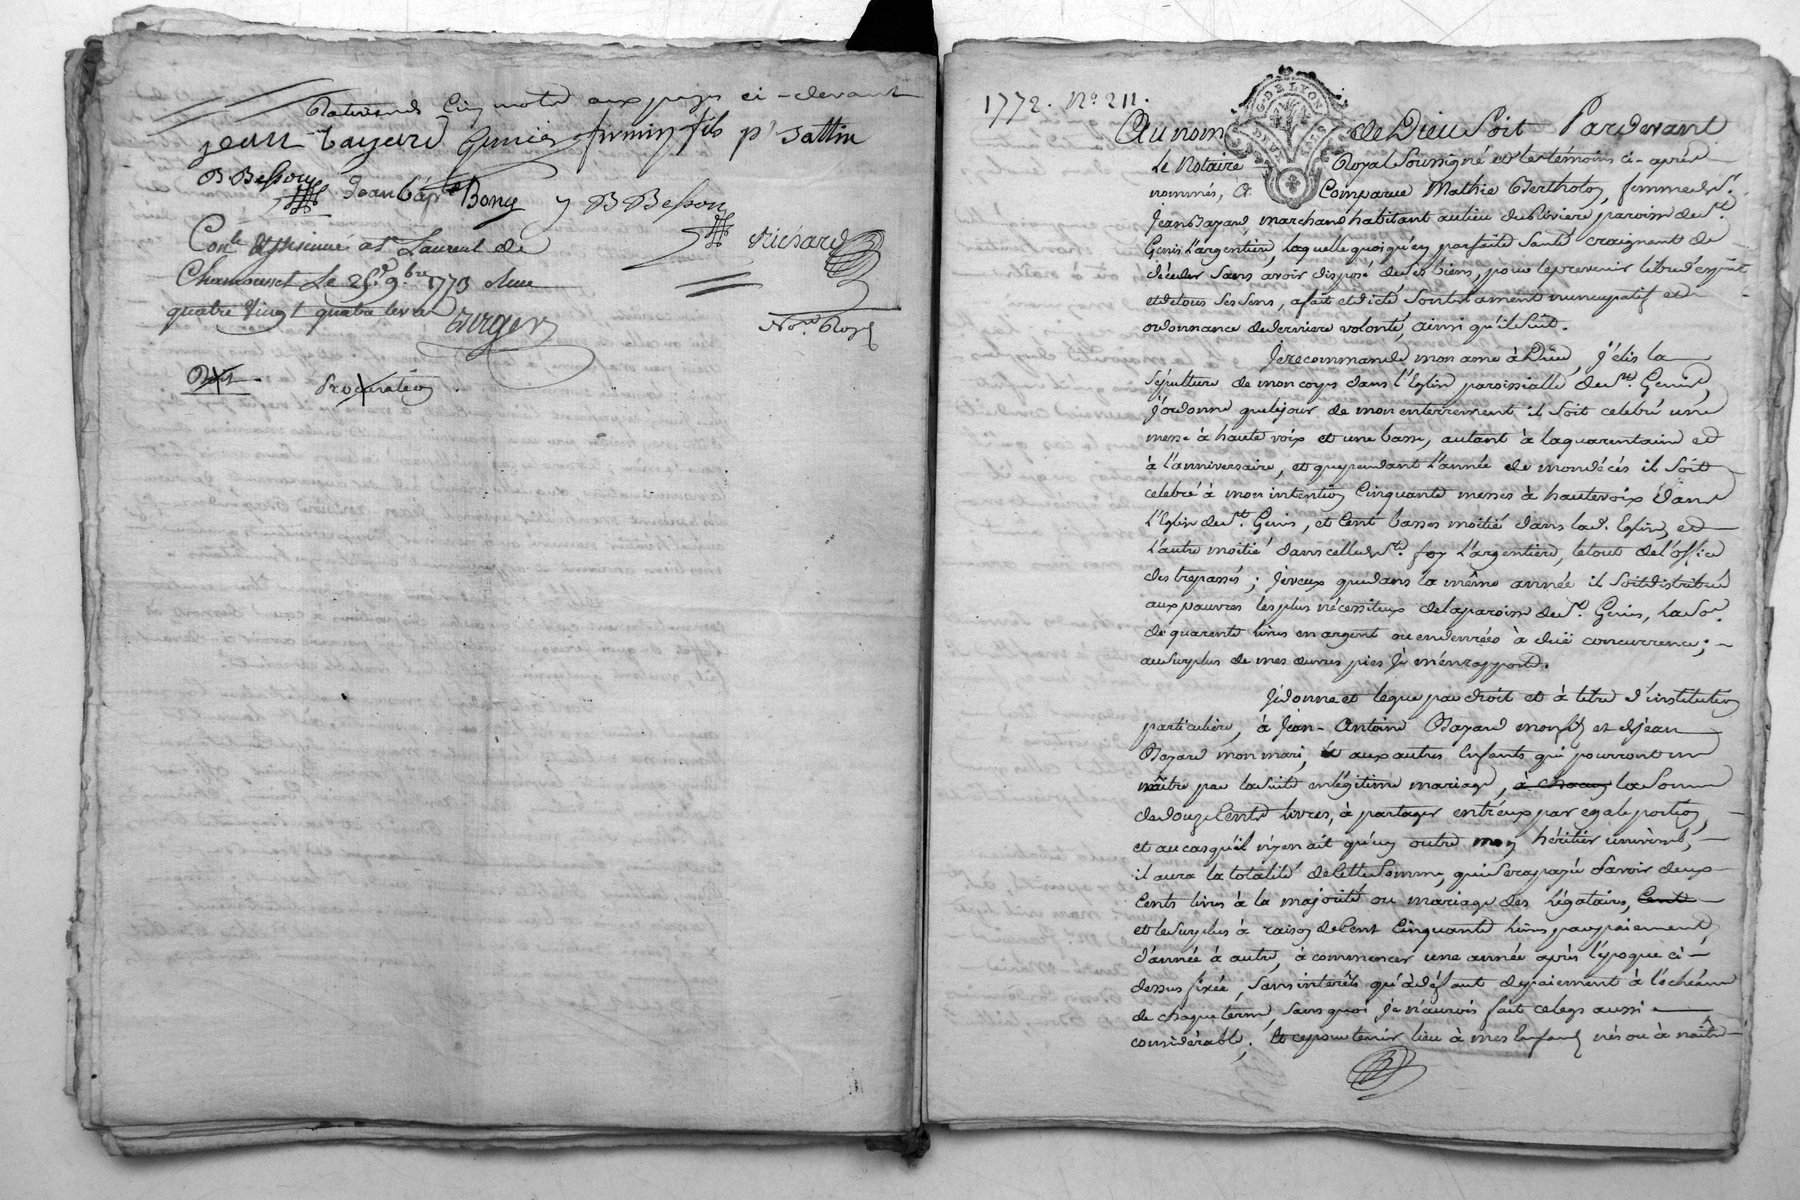 cinq mots aux pages ci-devant
jean bayard firmin fils pr sattin
B Besson
Jean bap.te Bony B Besson
Con.lé St Laurent de Richard
Chamousset Le 9.bre 1773
quatre vingt quatre livres
Verger No.re Royl
Procuration
1772. No. 211.
G. DE LYON
Au nom de Dieu Soit Pardevant
Le Notaire Royal Soussigné et les témoins ci-après
nommés, a Comparue Mathie Bertholon, femme de Sr.
Jean Bayard, marchand habitant au lieu de paroisse de St.
Genis L'argentiere, laquelle quoiqu'en parfaite Santé craignant de
décéder Sans avoir disposé de Ses biens, pour le prevenir libre d'esprit
et de tous Ses Sens, a fait et dicté Son testament nuncupatif et
ordonnance de derniere volonté, ainsi qu'il Suit.
Je recommande mon ame à Dieu, J'élis la
Sépulture de mon corps dans l'Eglise paroissialle de St. Genis,
J'ordonne que le jour de mon enterrement il Soit celebré une
messe à haute voix et une basse, autant à la quarentaine et
à l'anniversaire, et que pendant l'année de mon décés il Soit
celebré à mon intention Cinquante messes à haute voix dans
l'Eglise de St. Genis, et Cent basses moitié dans lad. Eglise, et
L'autre moitié dans celle de Ste. foy L'argentiere, le tout de l'office
des trepassés; Je veux que dans la même année il Soit distribué
aux pauvres les plus nécessiteux de la paroisse de St. Genis, la Soe.
de quarente livres en argent ou en denrées à düe concurrence;
au Surplus de mes œuvres pies Je m'en rapporte.
Je donne et legue par droit et à titre d'institution
particuliere, à Jean-Antoine Bayard mon fils et de Jean
Bayard mon mari, et aux autres Enfants qui pourront me
naître par la Suite en légitime mariage, à chacun la Somme
de douze Cents livres, à partager entr'eux par egale portion,
et au cas qu'il n'y en ait qu'un outre mon héritier universel,
il aura la totalité de cette Somme, qui Sera payée Savoir deux
Cents livres à la majorité ou mariage des Légataires, Cent
et le Surplus à raison de Cent Cinquante livres par paiement
d'année à autre, à commencer une année après l'époque ci-
dessus fixée, Sans intérêts qu'à défaut de paiement à l'echéance
de chaque terme, Sans quoi Je n'aurois fait ce legs aussi
considérable; Et ce pour tenir lieu à mes Enfants nés ou à naître